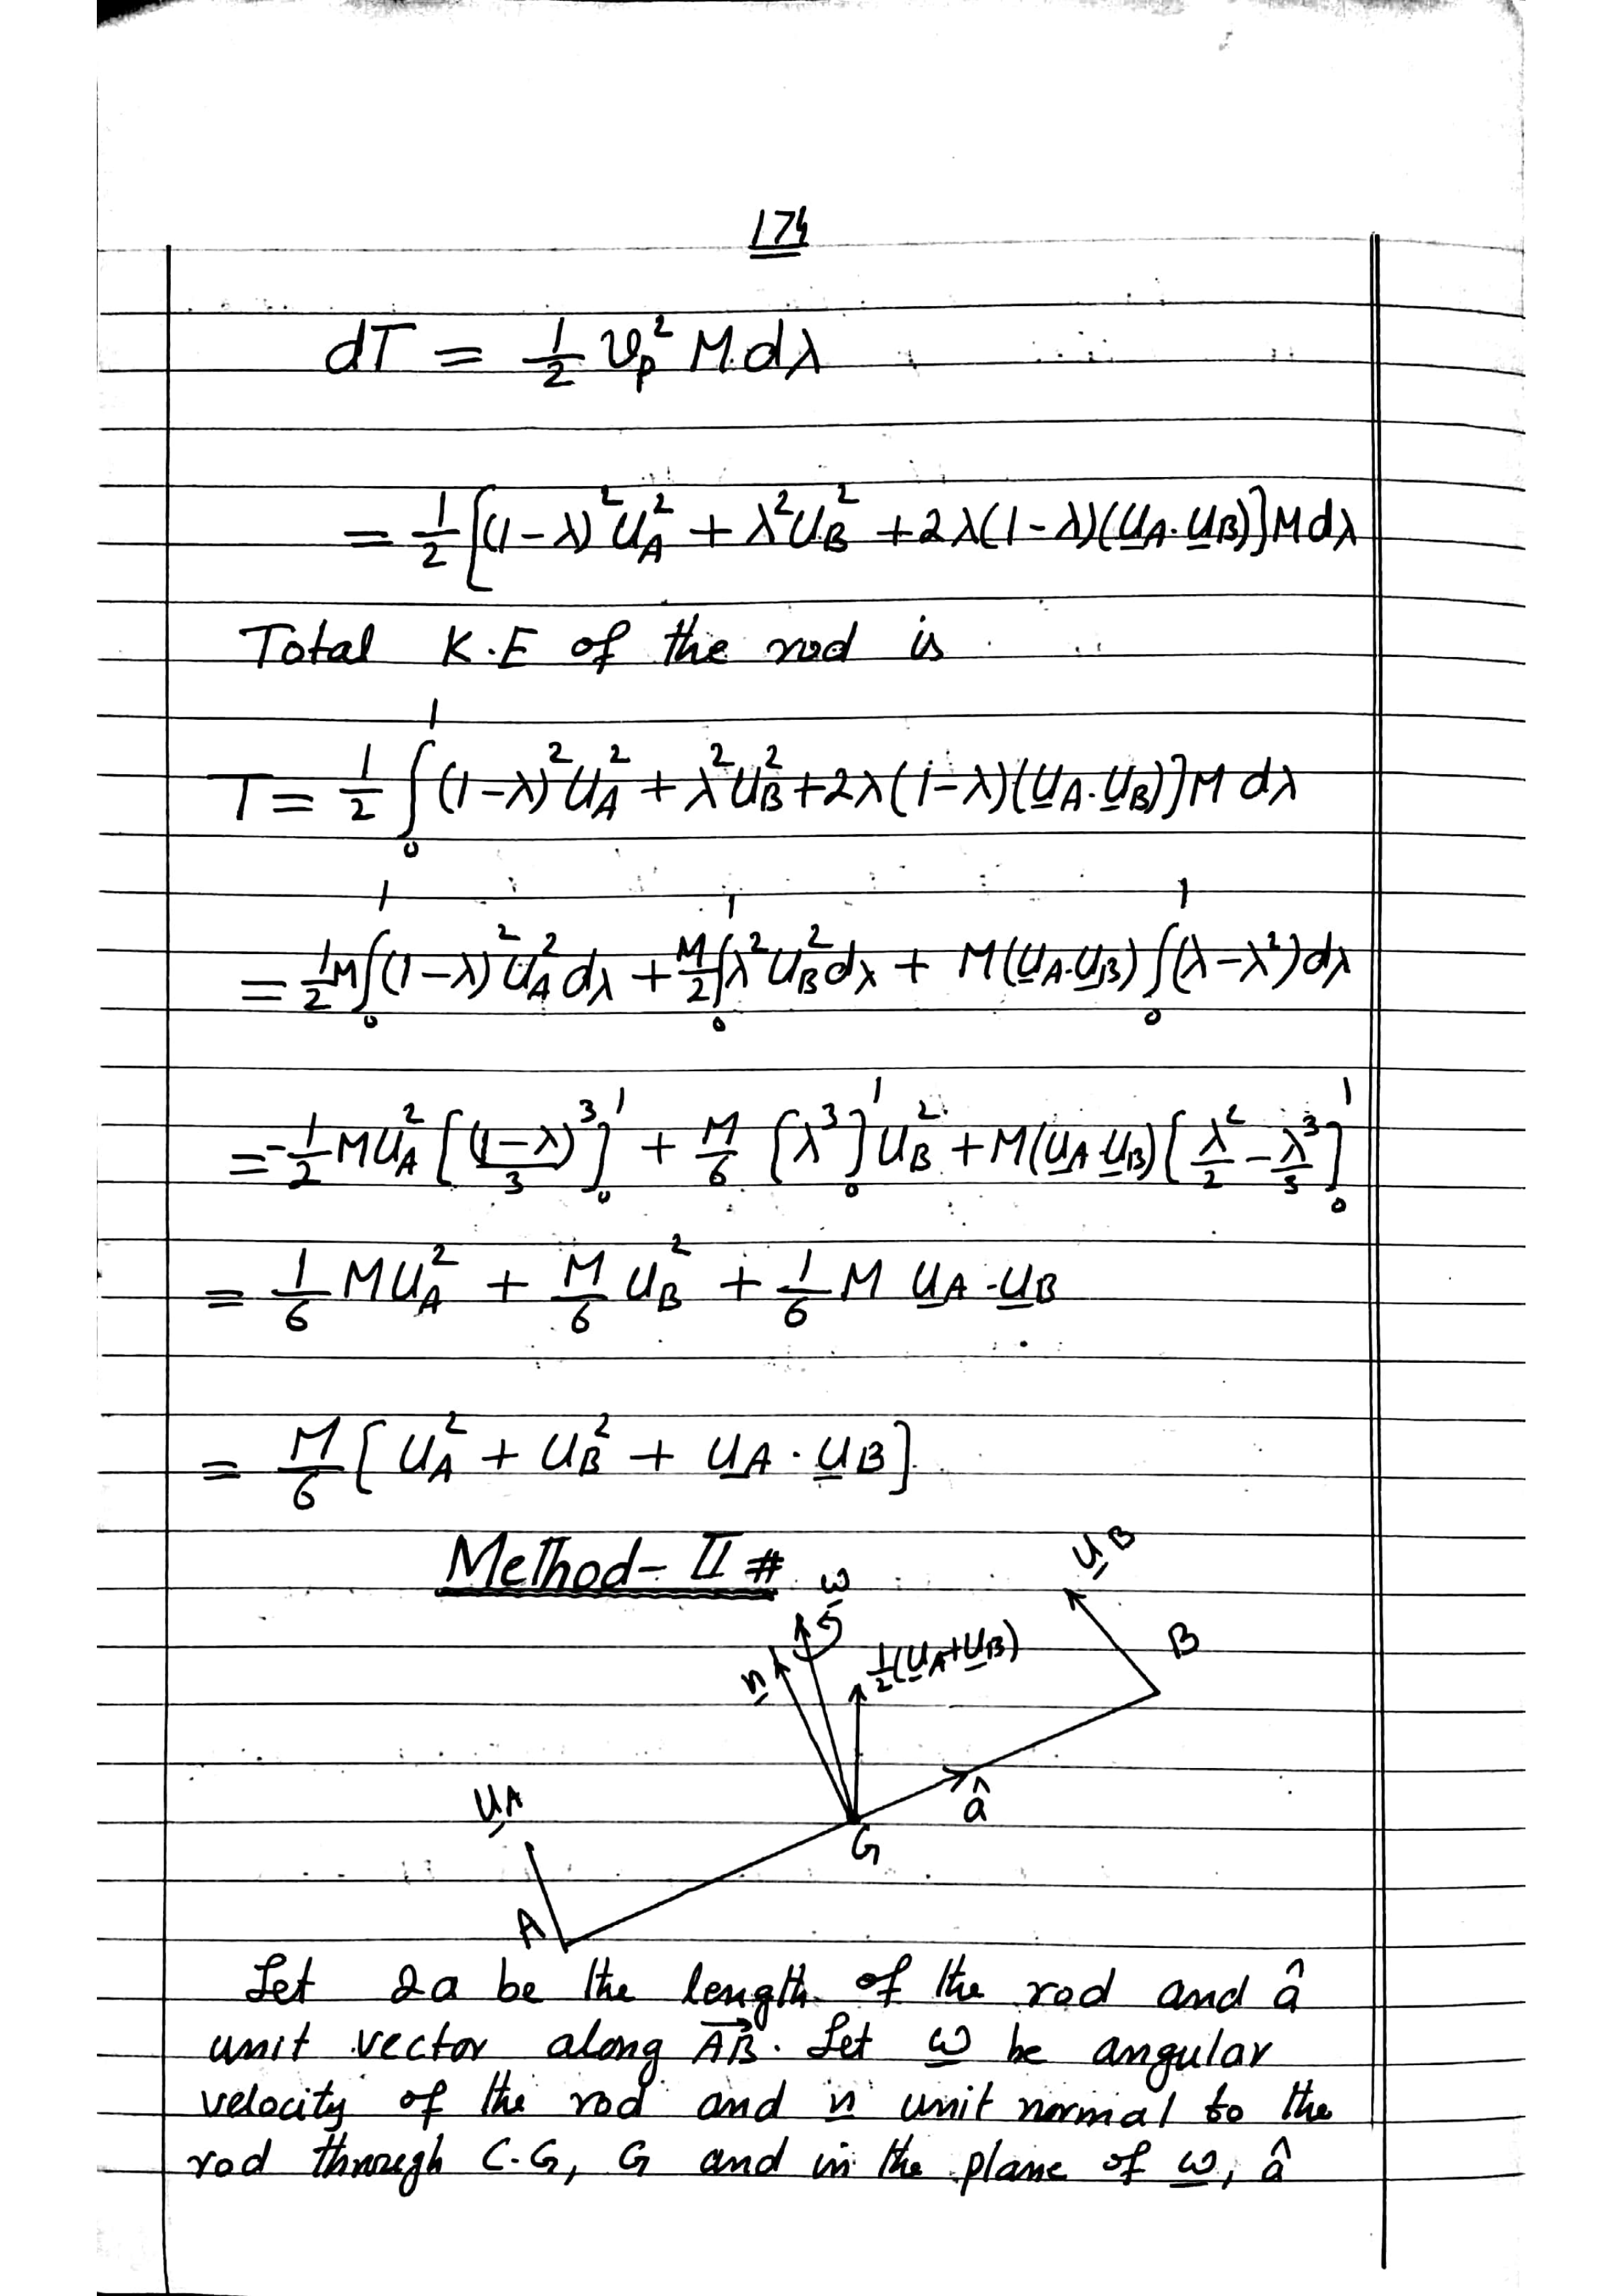 174
dT = 1/2 v_p² M dλ
= 1/2 [(1-λ)² U_A² + λ² U_B² + 2λ(1-λ)(U_A · U_B)] M dλ
Total K.E of the rod is
T = 1/2 ∫₀¹ (1-λ)² U_A² + λ² U_B² + 2λ(1-λ)(U_A · U_B)] M dλ
= 1/2 M ∫₀¹ (1-λ)² U_A² dλ + M/2 ∫₀¹ λ² U_B² dλ + M(U_A · U_B) ∫₀¹ (λ-λ²) dλ
= -1/2 M U_A² [(1-λ)³/3]₀¹ + M/6 [λ³]₀¹ U_B² + M(U_A · U_B) [λ²/2 - λ³/3]₀¹
= 1/6 M U_A² + M/6 U_B² + 1/6 M U_A · U_B
= M/6 [U_A² + U_B² + U_A · U_B]
Method - II #
U_B
ω
B
1/2(U_A+U_B)
n
U_A
â
G
A
Let 2a be the length of the rod and â
unit vector along AB. Let ω be angular
velocity of the rod and n unit normal to the
rod through C.G, G and in the plane of ω, â